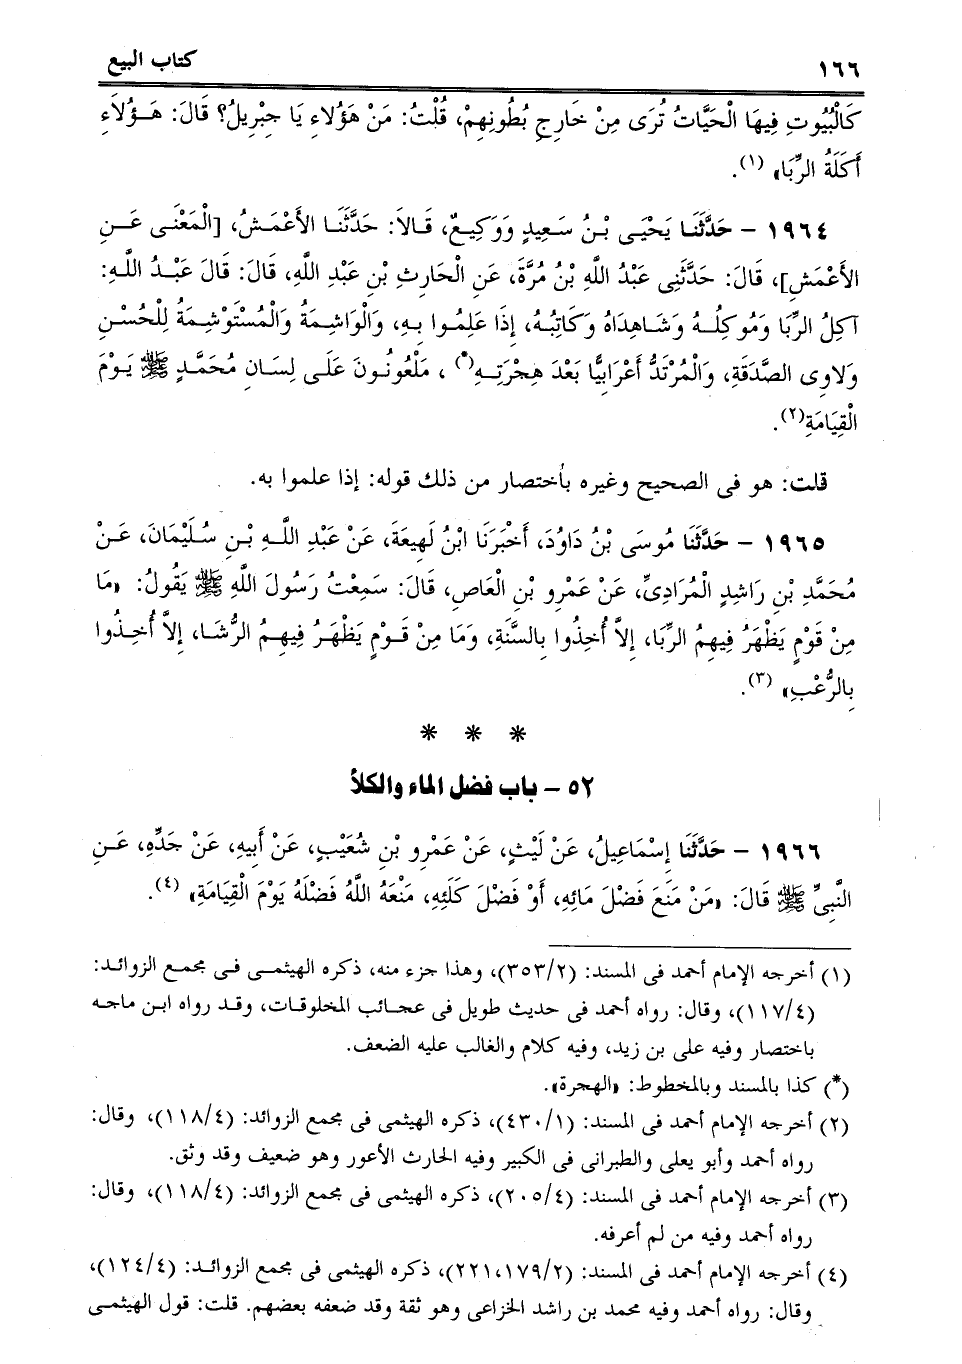 ١٦٦
كتاب البيع
كَالْبُيُوتِ فِيهَا الْحَيَّاتُ تُرَى مِنْ خَارِجِ بُطُونِهِمْ، قُلْتُ: مَنْ هَؤُلاءِ يَا جِبْرِيلُ؟ قَالَ: هَـؤُلاَءِ
أَكَلَةُ الرِّبَا» (١).
١٩٦٤ – حَدَّثَنَا يَحْيَى بْنُ سَعِيدٍ وَوَكِيـعٌ، قَـالاَ: حَدَّثَنَـا الأَعْمَـشُ، [الْمَعْنَـى عَـنِ
الأَعْمَشِ]، قَالَ: حَدَّثَنِى عَبْدُ اللَّهِ بْنُ مُرَّةَ، عَنِ الْحَارِثِ بْنِ عَبْدِ اللَّهِ، قَالَ: قَالَ عَبْـدُ اللَّهِ:
آكِلُ الرِّبَا وَمُوكِلُـهُ وَشَـاهِدَاهُ وَكَاتِبُـهُ، إِذَا عَلِمُـوا بِـهِ، وَالْوَاشِمَـةُ وَالْمُسْتَوْشِمَةُ لِلْحُسْنِ
وَلاوِى الصَّدَقَةِ، وَالْمُرْتَدُّ أَعْرَابِيًّا بَعْدَ هِجْرَتِـهِ(*) ، مَلْعُونُـونَ عَلَـى لِسَـانِ مُحَمَّـدٍ ﷺ يَـوْمَ
الْقِيَامَةِ(٢).
قلت: هو فى الصحيح وغيره بأختصار من ذلك قوله: إذا علموا به.
١٩٦٥ – حَدَّثَنَا مُوسَى بْنُ دَاوُدَ، أَخْبَرَنَا ابْنُ لَهِيعَةَ، عَنْ عَبْدِ اللَّـهِ بْـنِ سُـلَيْمَانَ، عَـنْ
مُحَمَّدِ بْنِ رَاشِدٍ الْمُرَادِىِّ، عَنْ عَمْرِو بْنِ الْعَاصِ، قَالَ: سَمِعْتُ رَسُولَ اللَّهِ ﷺ يَقُولُ: «مَا
مِنْ قَوْمٍ يَظْهَرُ فِيهِمُ الرِّبَا، إِلاَّ أُخِذُوا بِالسَّنَةِ، وَمَا مِنْ قَـوْمٍ يَظْهَـرُ فِيهِـمُ الرُّشَـا، إِلاَّ أُخِـذُوا
بِالرُّعْبِ» (٣).
* * *
٥٢ – باب فضل الماء والكلأ
١٩٦٦ – حَدَّثَنَا إِسْمَاعِيلُ، عَنْ لَيْثٍ، عَنْ عَمْرِو بْنِ شُعَيْبٍ، عَنْ أَبِيهِ، عَنْ جَدِّهِ، عَـنِ
النَّبِىِّ ﷺ قَالَ: «مَنْ مَنَعَ فَضْلَ مَائِهِ، أَوْ فَضْلَ كَلَئِهِ، مَنَعَهُ اللَّهُ فَضْلَهُ يَوْمَ الْقِيَامَةِ» (٤).
(١) أخرجه الإمام أحمد فى المسند: (٣٥٣/٢)، وهذا جزء منه، ذكره الهيثمـى فـى مجمع الزوائـد:
(١١٧/٤)، وقال: رواه أحمد فى حديث طويل فى عجـائب المخلوقـات، وقـد رواه ابـن ماجـه
باختصار وفيه على بن زيد، وفيه كلام والغالب عليه الضعف.
(*) كذا بالمسند وبالمخطوط: «الهجرة».
(٢) أخرجه الإمام أحمد فى المسند: (٤٣٠/١)، ذكره الهيثمى فى مجمع الزوائد: (١١٨/٤)، وقال:
رواه أحمد وأبو يعلى والطبرانى فى الكبير وفيه الحارث الأعور وهو ضعيف وقد وثق.
(٣) أخرجه الإمام أحمد فى المسند: (٢٠٥/٤)، ذكره الهيثمى فى مجمع الزوائد: (١١٨/٤)، وقال:
رواه أحمد وفيه من لم أعرفه.
(٤) أخرجه الإمام أحمد فى المسند: (١٧٩/٢، ٢٢١)، ذكره الهيثمى فى مجمع الزوائـد: (١٢٤/٤)،
وقال: رواه أحمد وفيه محمد بن راشد الخزاعى وهو ثقة وقد ضعفه بعضهم. قلت: قول الهيثمـى